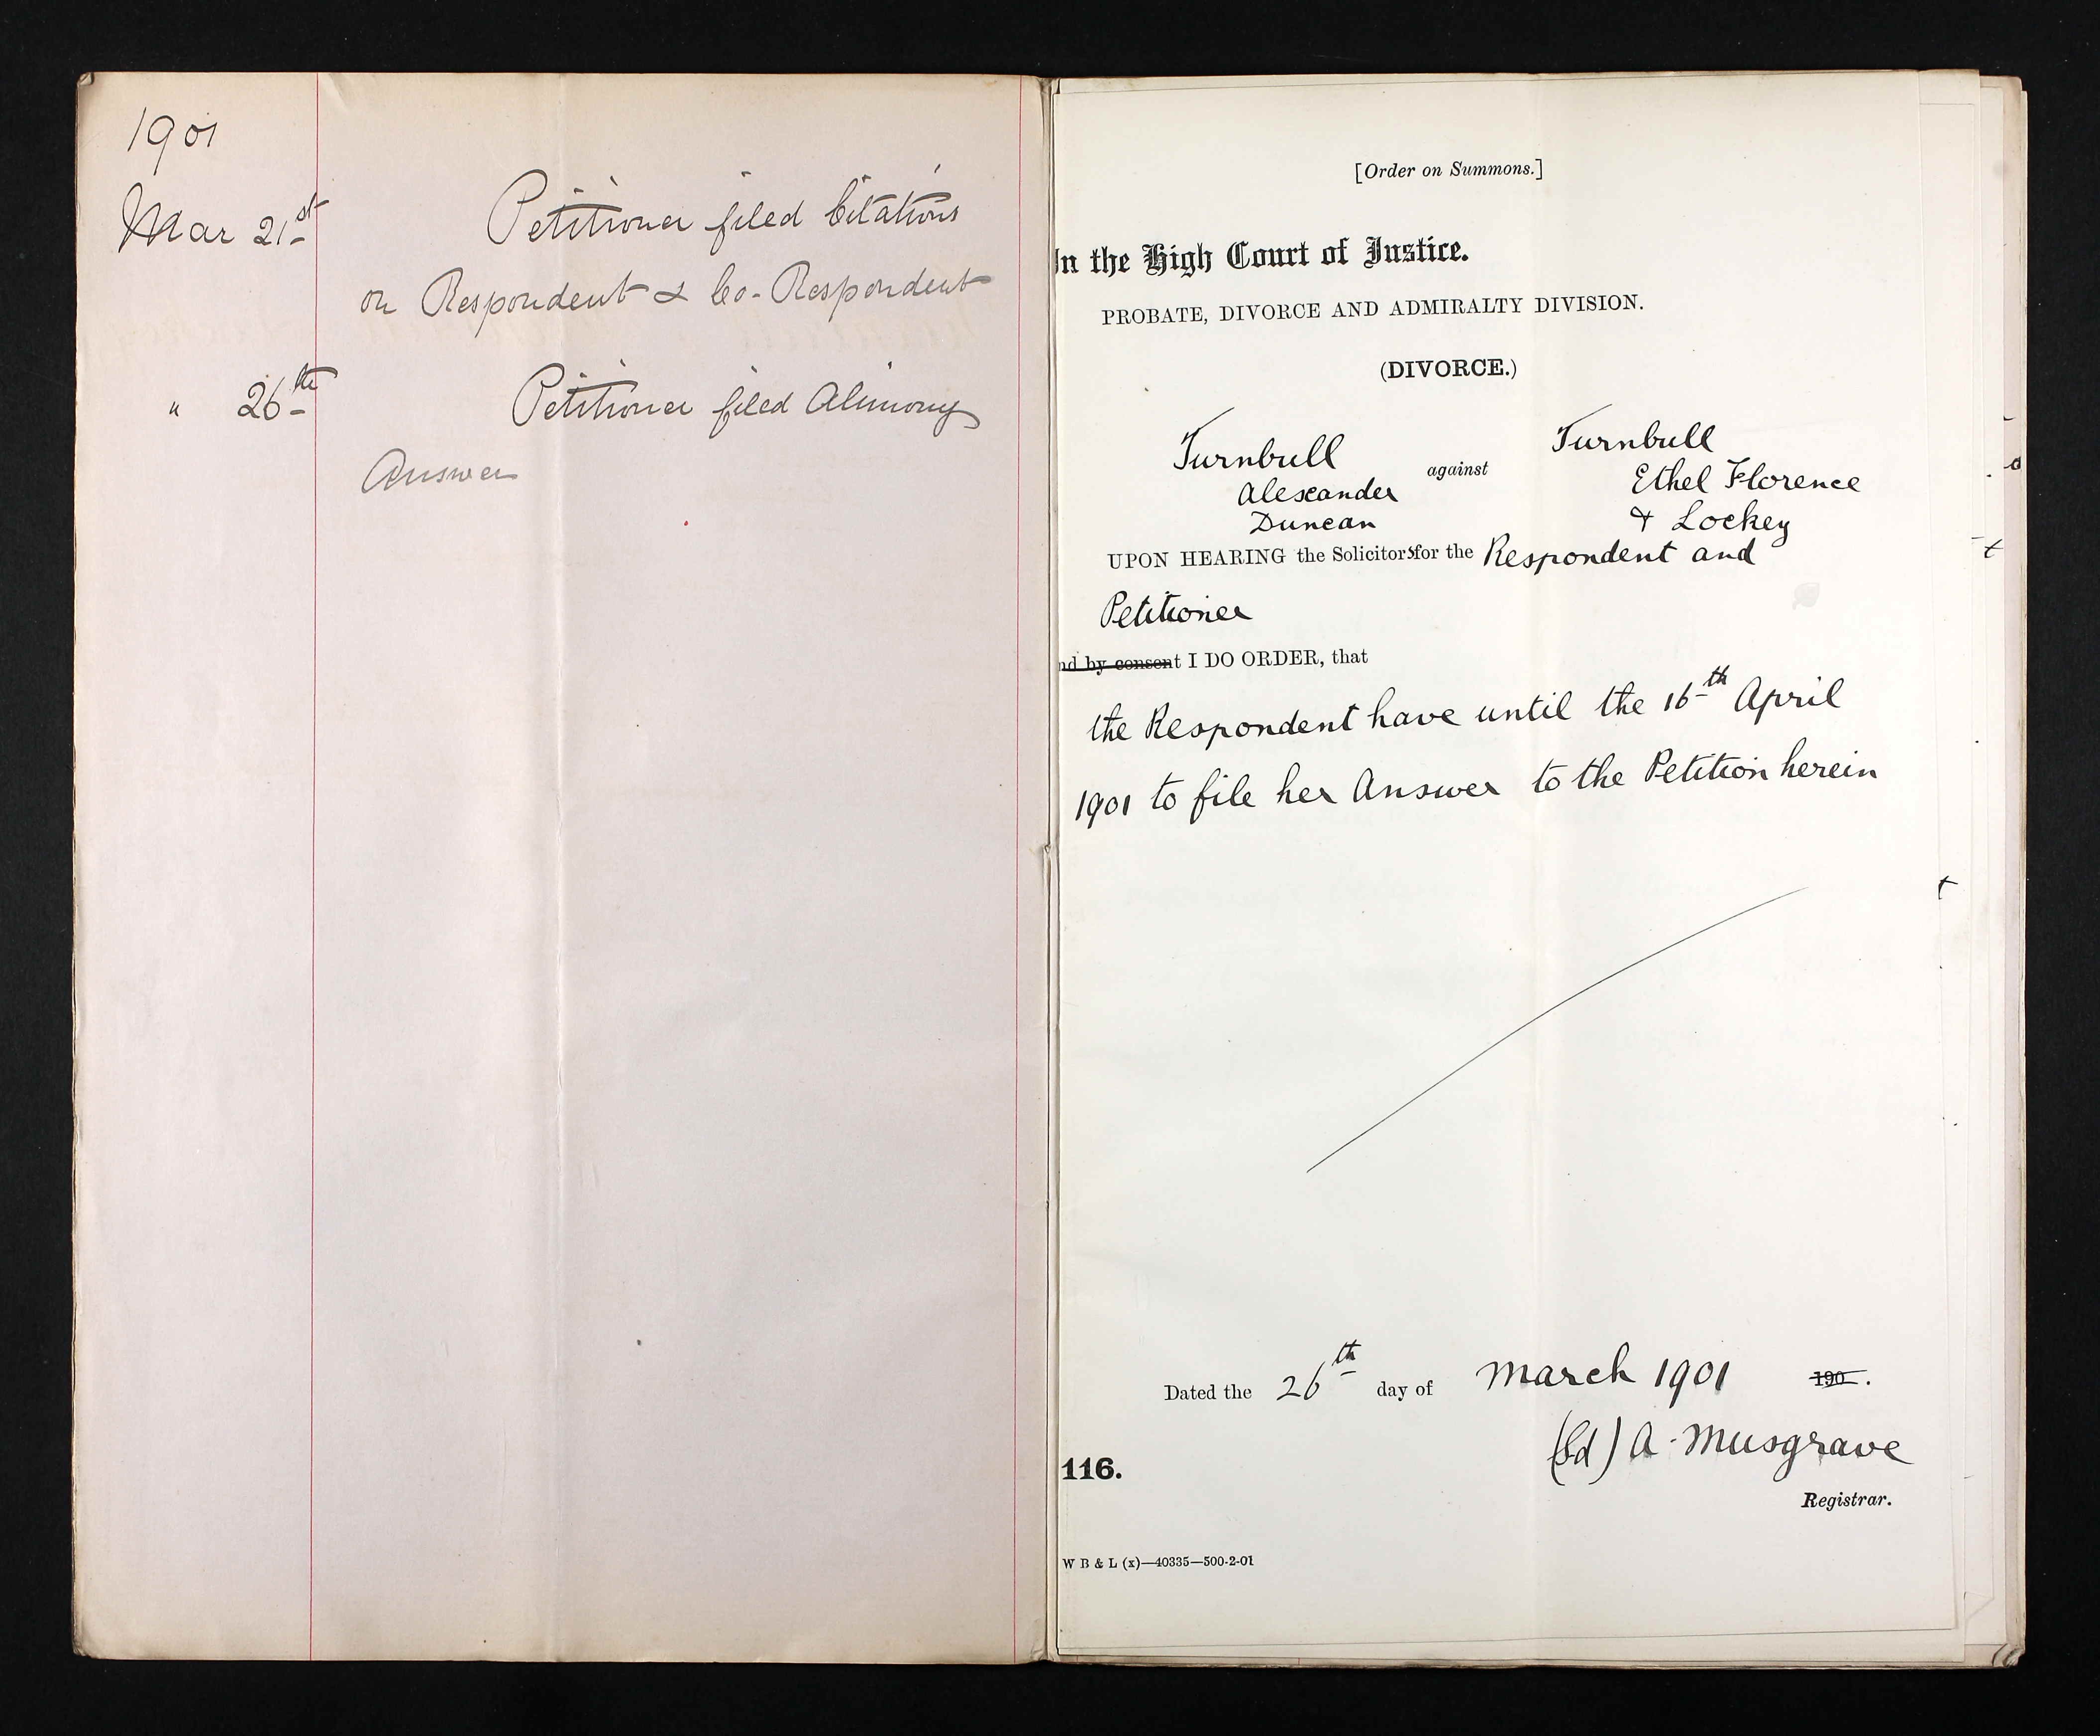 1901
Mar 21st Petitioner filed Citations
on Respondent & Co-Respondent
" 26th Petitioner filed Alimony
Answer
[Order on Summons.]
In the High Court of Justice.
PROBATE, DIVORCE AND ADMIRALTY DIVISION.
(DIVORCE.)
Turnbull against Turnbull
Alexander Ethel Florence
Duncan & Lockey
UPON HEARING the Solicitors for the Respondent and
Petitioner
nd by consent I DO ORDER, that
the Respondent have until the 16th April
1901 to file her Answer to the Petition herein
Dated the 26th day of March 1901 190 .
(Sd) A. Musgrave
116.
Registrar.
W B & L (x)—40335—500-2-01